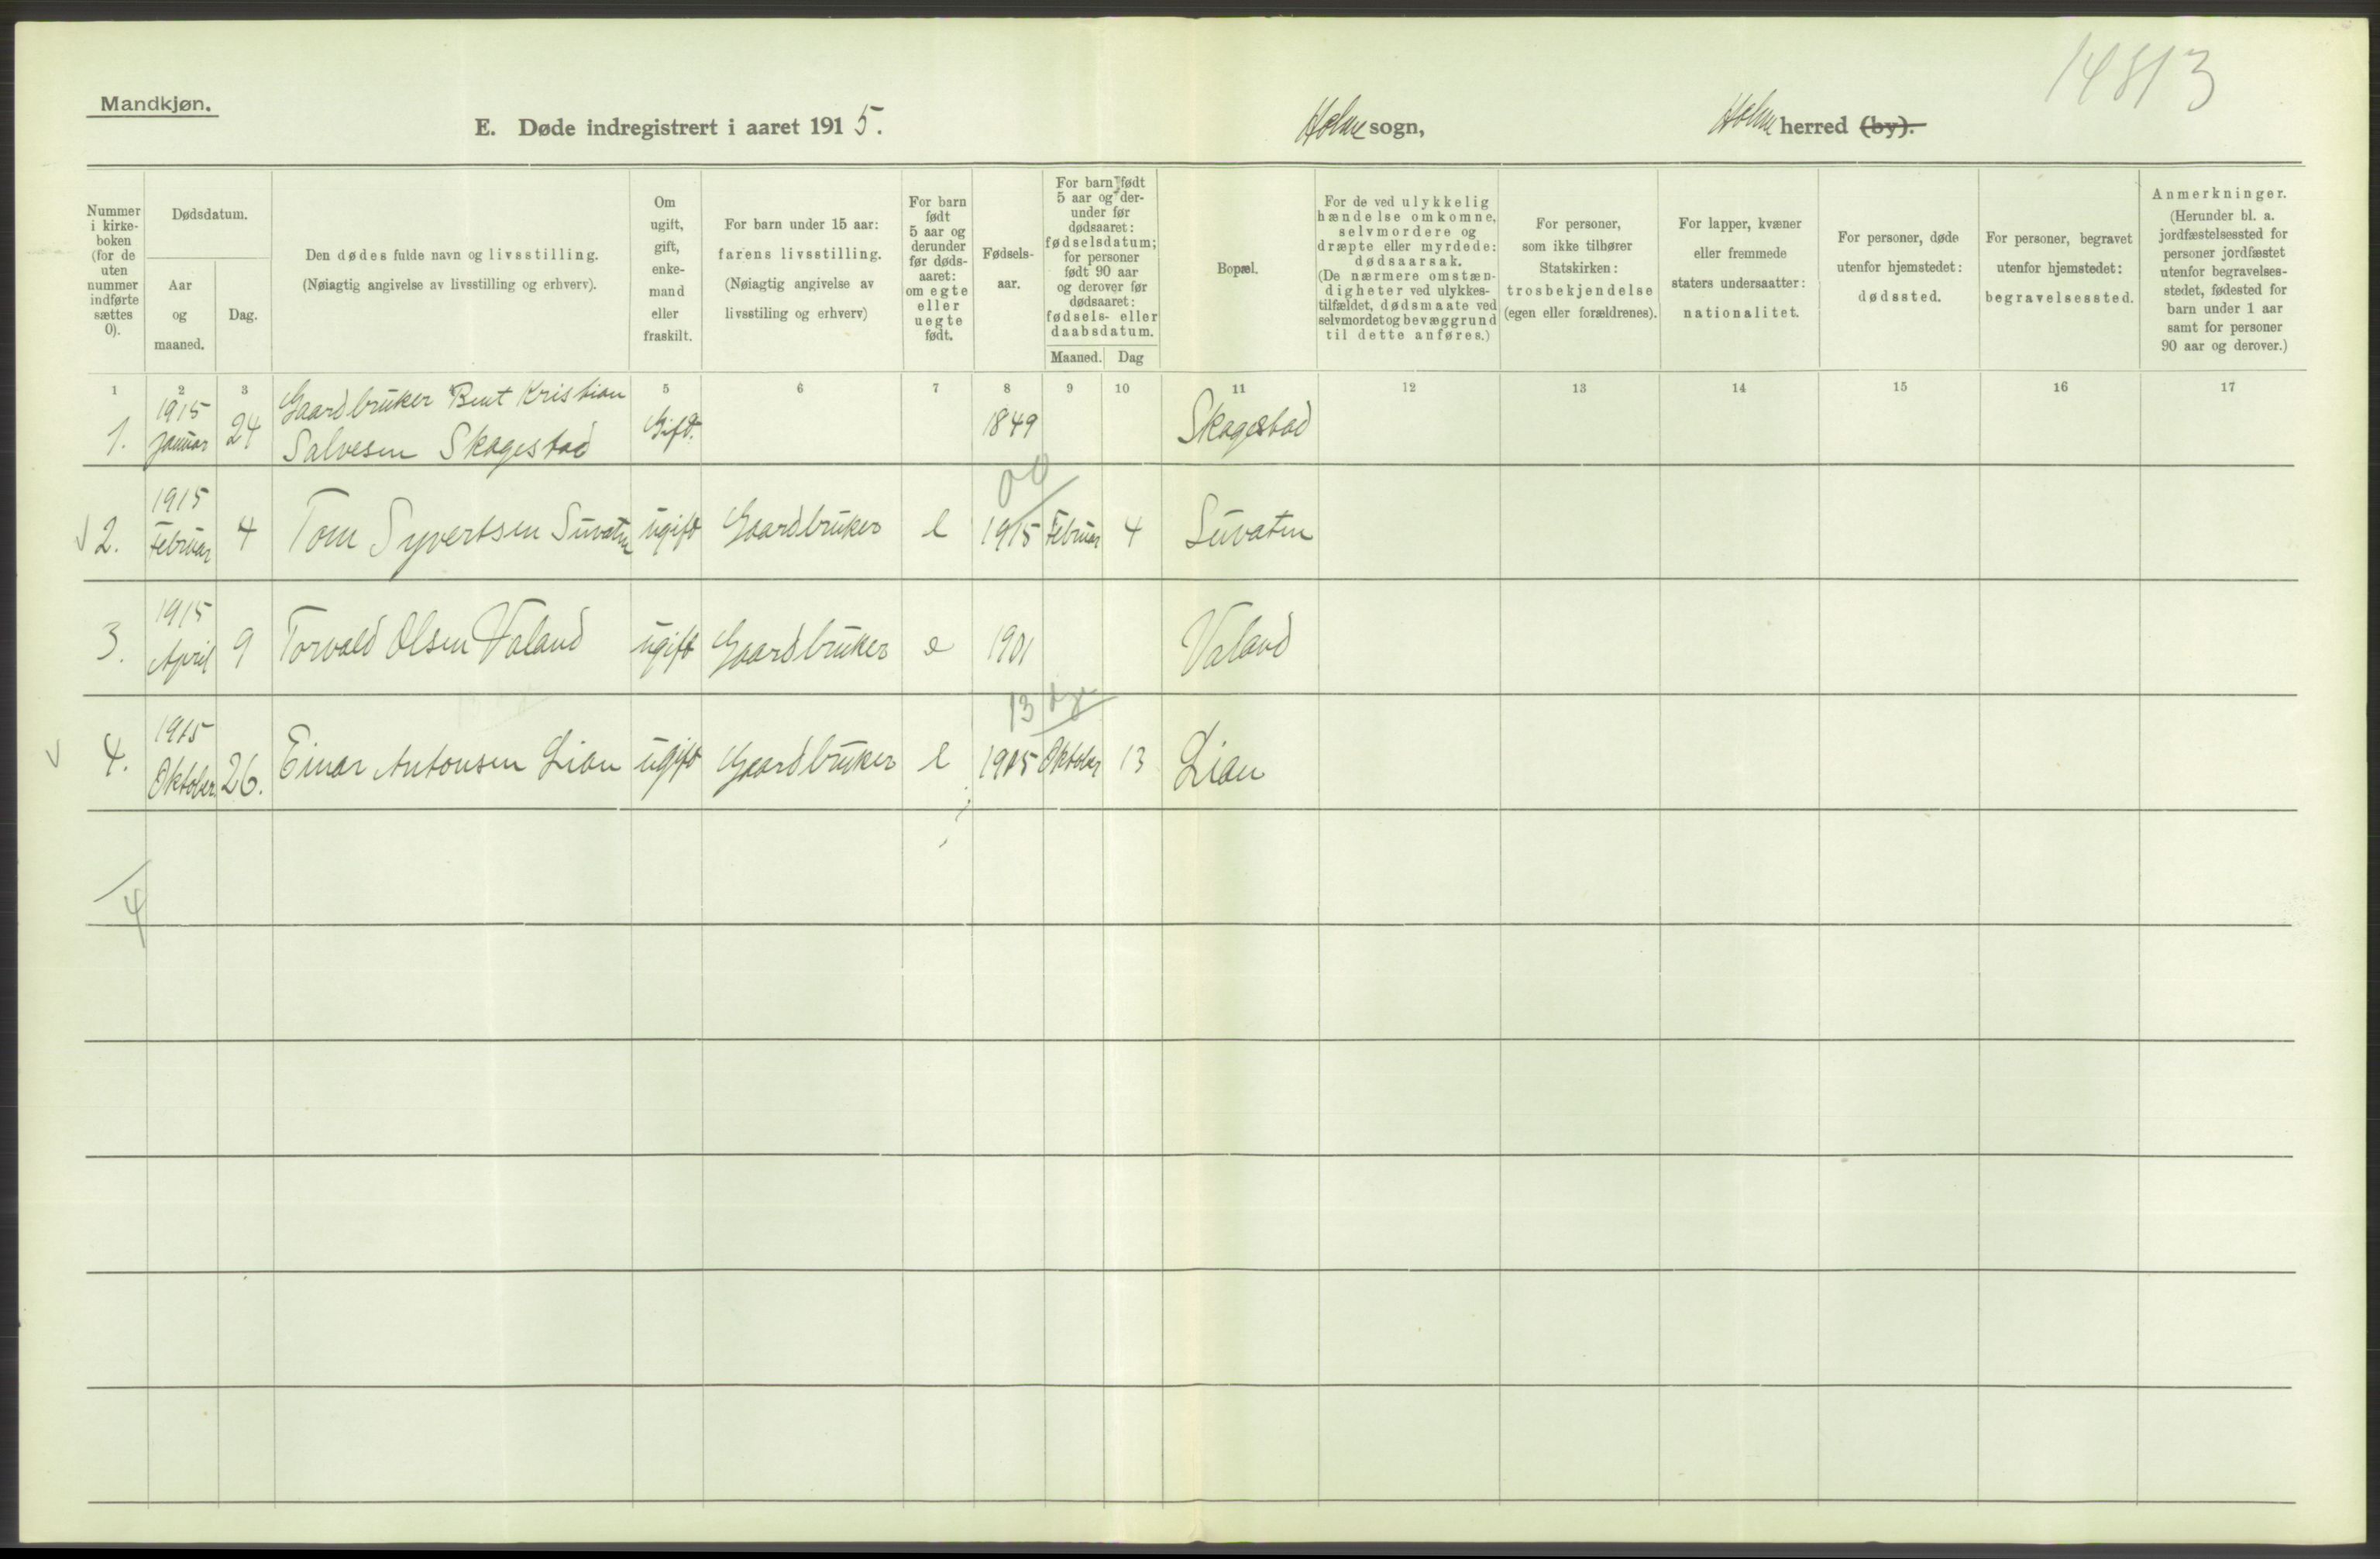 14813
Mandkjøn.
E. Døde indregistrert i aaret 1915.
Holme sogn,
Holme herred (by).
Nummer
i kirke-
boken
(for de
uten
nummer
indførte
sættes
0).
Dødsdatum.
Aar
og
maaned.
Dag.
Den dødes fulde navn og livsstilling.
(Nøiagtig angivelse av livsstilling og erhverv).
Om
ugift,
gift,
enke-
mand
eller
fraskilt.
For barn under 15 aar:
farens livsstilling.
(Nøiagtig angivelse av
livsstiling og erhverv)
For barn
født
5 aar og
derunder
før døds-
aaret:
om egte
eller
uegte
født.
Fødsels-
aar.
For barn født
5 aar og der-
under før
dødsaaret:
fødselsdatum;
for personer
født 90 aar
og derover før
dødsaaret:
fødsels- eller
daabsdatum.
Maaned. Dag
Bopæl.
For de ved ulykkelig
hændelse omkomne,
selvmordere og
dræpte eller myrdede:
dødsaarsak.
(De nærmere omstæn-
digheter ved ulykkes-
tilfældet, dødsmaate ved
selvmordet og bevæggrund
til dette anføres.)
For personer,
som ikke tilhører
Statskirken:
trosbekjendelse
(egen eller forældrenes).
For lapper, kvæner
eller fremmede
staters undersaatter:
nationalitet.
For personer, døde
utenfor hjemstedet:
dødssted.
For personer, begravet
utenfor hjemstedet:
begravelsessted.
Anmerkninger.
(Herunder bl. a.
jordfæstelsessted for
personer jordfæstet
utenfor begravelses-
stedet, fødested for
barn under 1 aar
samt for personer
90 aar og derover.)
1 2 3 5 6 7 8 9 10 11 12 13 14 15 16 17
1915 Gaardbruker Bent Kristian
1. Januar 24 Salvesen Skagestad Gift. 1849 Skagestad
1915 00
2. Februar 4 Tom Syvertsen Suvatn ugift Gaardbruker e 1915 Februar 4 Suvatn
1915
3. April 9 Torvald Olsen Valand ugift Gaardbruker e 1901 Valand
1915 13
4. Oktober 26. Einar Antonsen Lian ugift Gaardbruker e 1915 Oktober 13 Lian
4